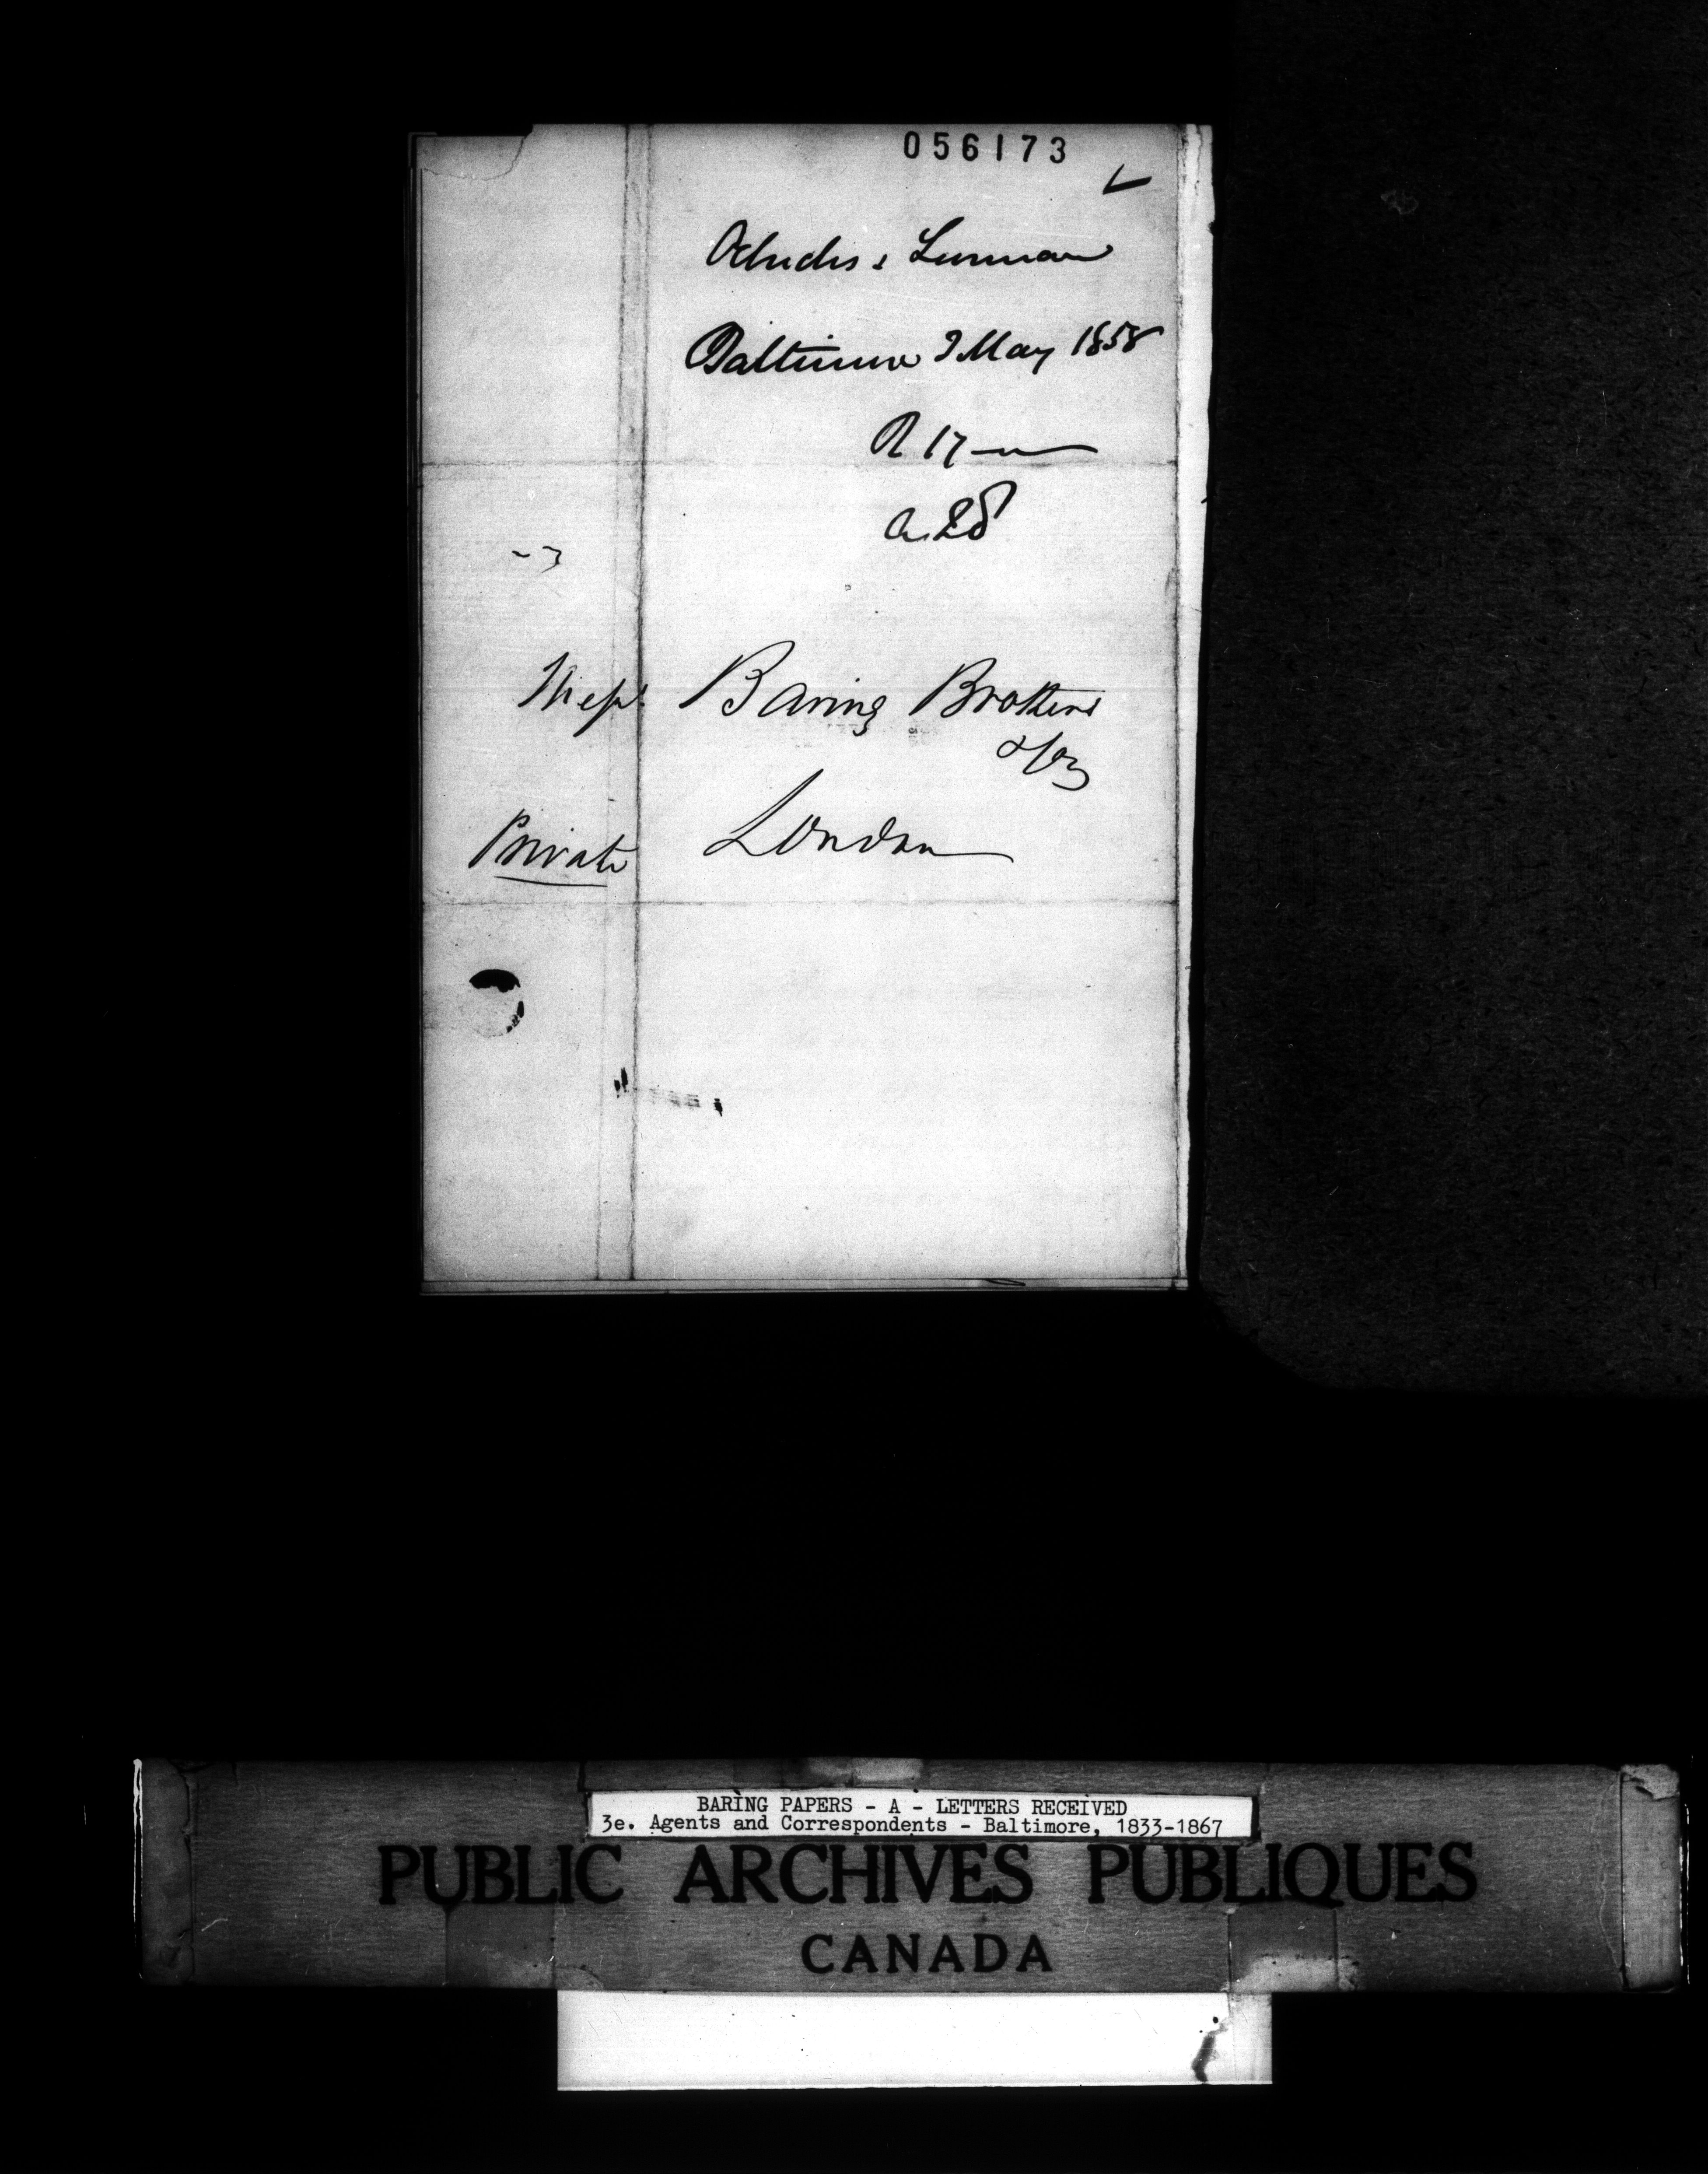 056173
Oelrichs & Lurman
Baltimore 3 May 1858
R 17 —
a. 28
Messrs Baring Brothers
& Co
Private London
BARING PAPERS - A - LETTERS RECEIVED
3e. Agents and Correspondents - Baltimore, 1833-1867
PUBLIC ARCHIVES PUBLIQUES
CANADA